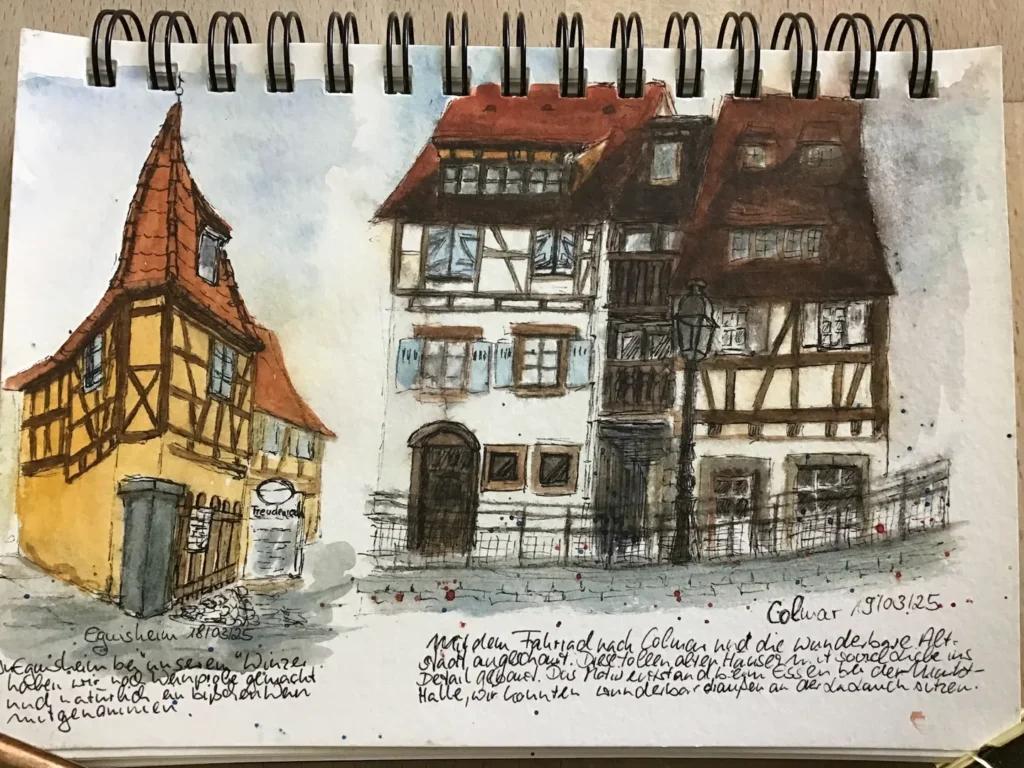 Freudenreich
Eguisheim 18/03/25
In Eguisheim bei "unserem" Winzer
haben wir noch Weinprobe gemacht
und natürlich ein bisschen Wein
mitgenommen.
Colmar 19/03/25
Mit dem Fahrrad nach Colmar und die wunderbare Alt-
stadt angeschaut. Diese tollen alten Häuser mit soviel Liebe ins
Detail gebaut. Das Motiv entstand beim Essen bei der Markt-
Halle, wir konnten wunderbar draußen an der Lauch sitzen.